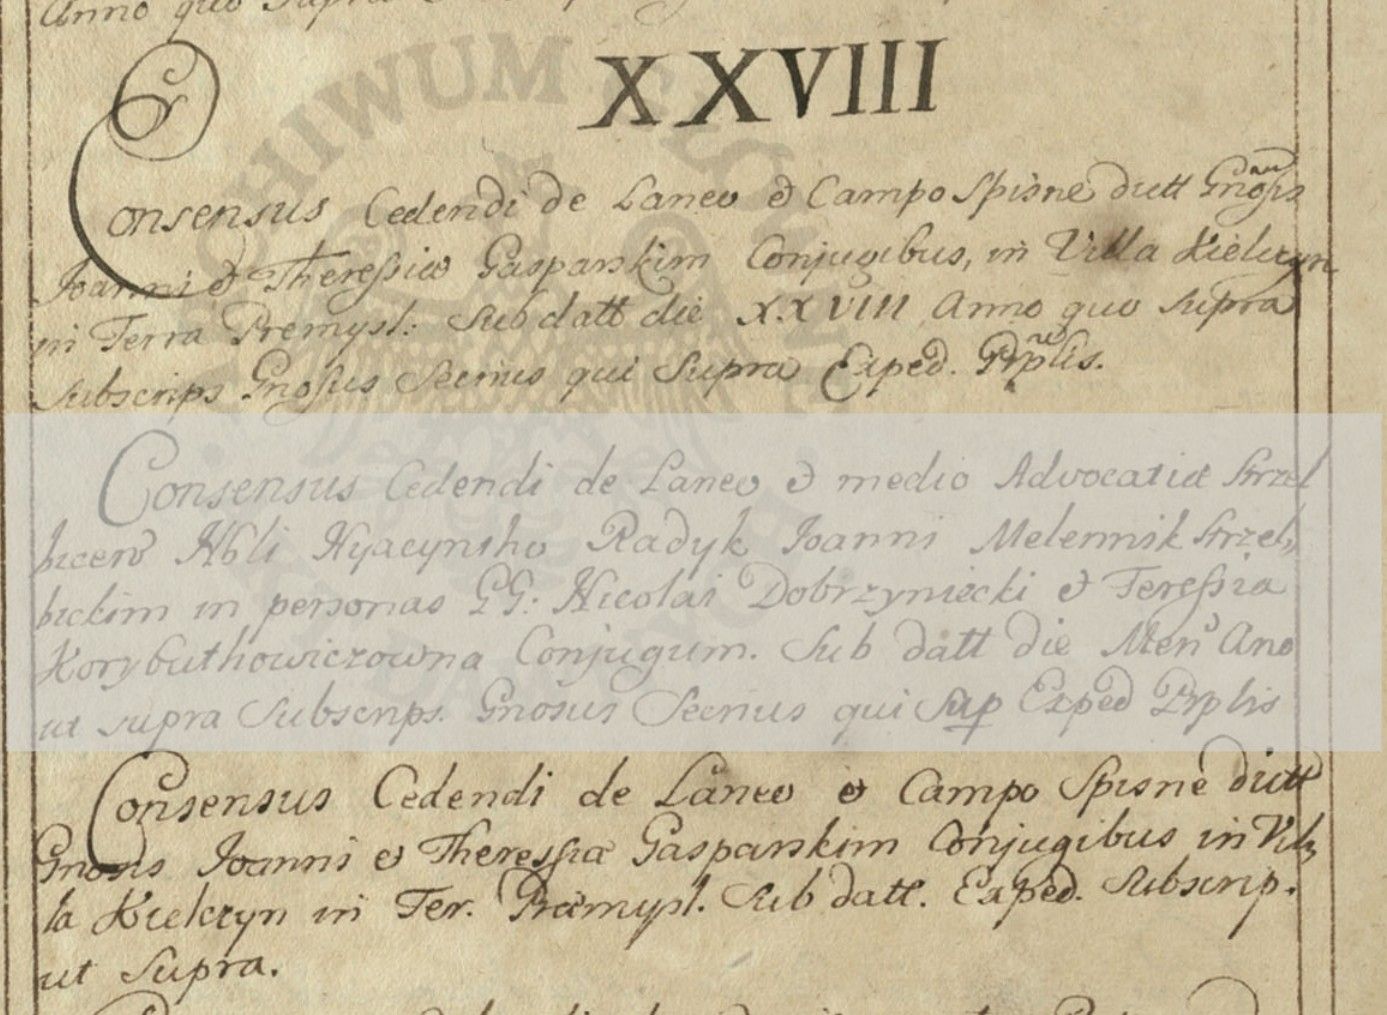 Anno quo Supra
XXVIII
Consensus Cedendi de Laneo & Campo Spisne dictt Gnosis
Joanni & Theressiæ Gasparskim Conjugibus, in Villa Kielczyn
in Terra Premysl: Sub datt die XXVIII Anno quo Supra
Subscrips Gnosus Secrius qui Supra Exped. Prplis.
Consensus Cedendi de Laneo & medio Advocatiæ Strzel
bicen Nbli Hyacyntho Radyk Joanni Melennik Strzel,
bickim in personas GG: Nicolai Dobrzyniecki & Teressia
Korybuthowiczowna Conjugum. Sub datt die Men Ano
ut supra Subscrips. Gnosus Secrius qui Sup Exped Prplis
Consensus Cedendi de Laneo & Campo Spisne dictt
Gnosis Joanni & Theressiæ Gasparskim Conjugibus in Vil,
la Kielczyn in Ter. Præmysl. Sub datt. Exped. Subscrip.
ut Supra.